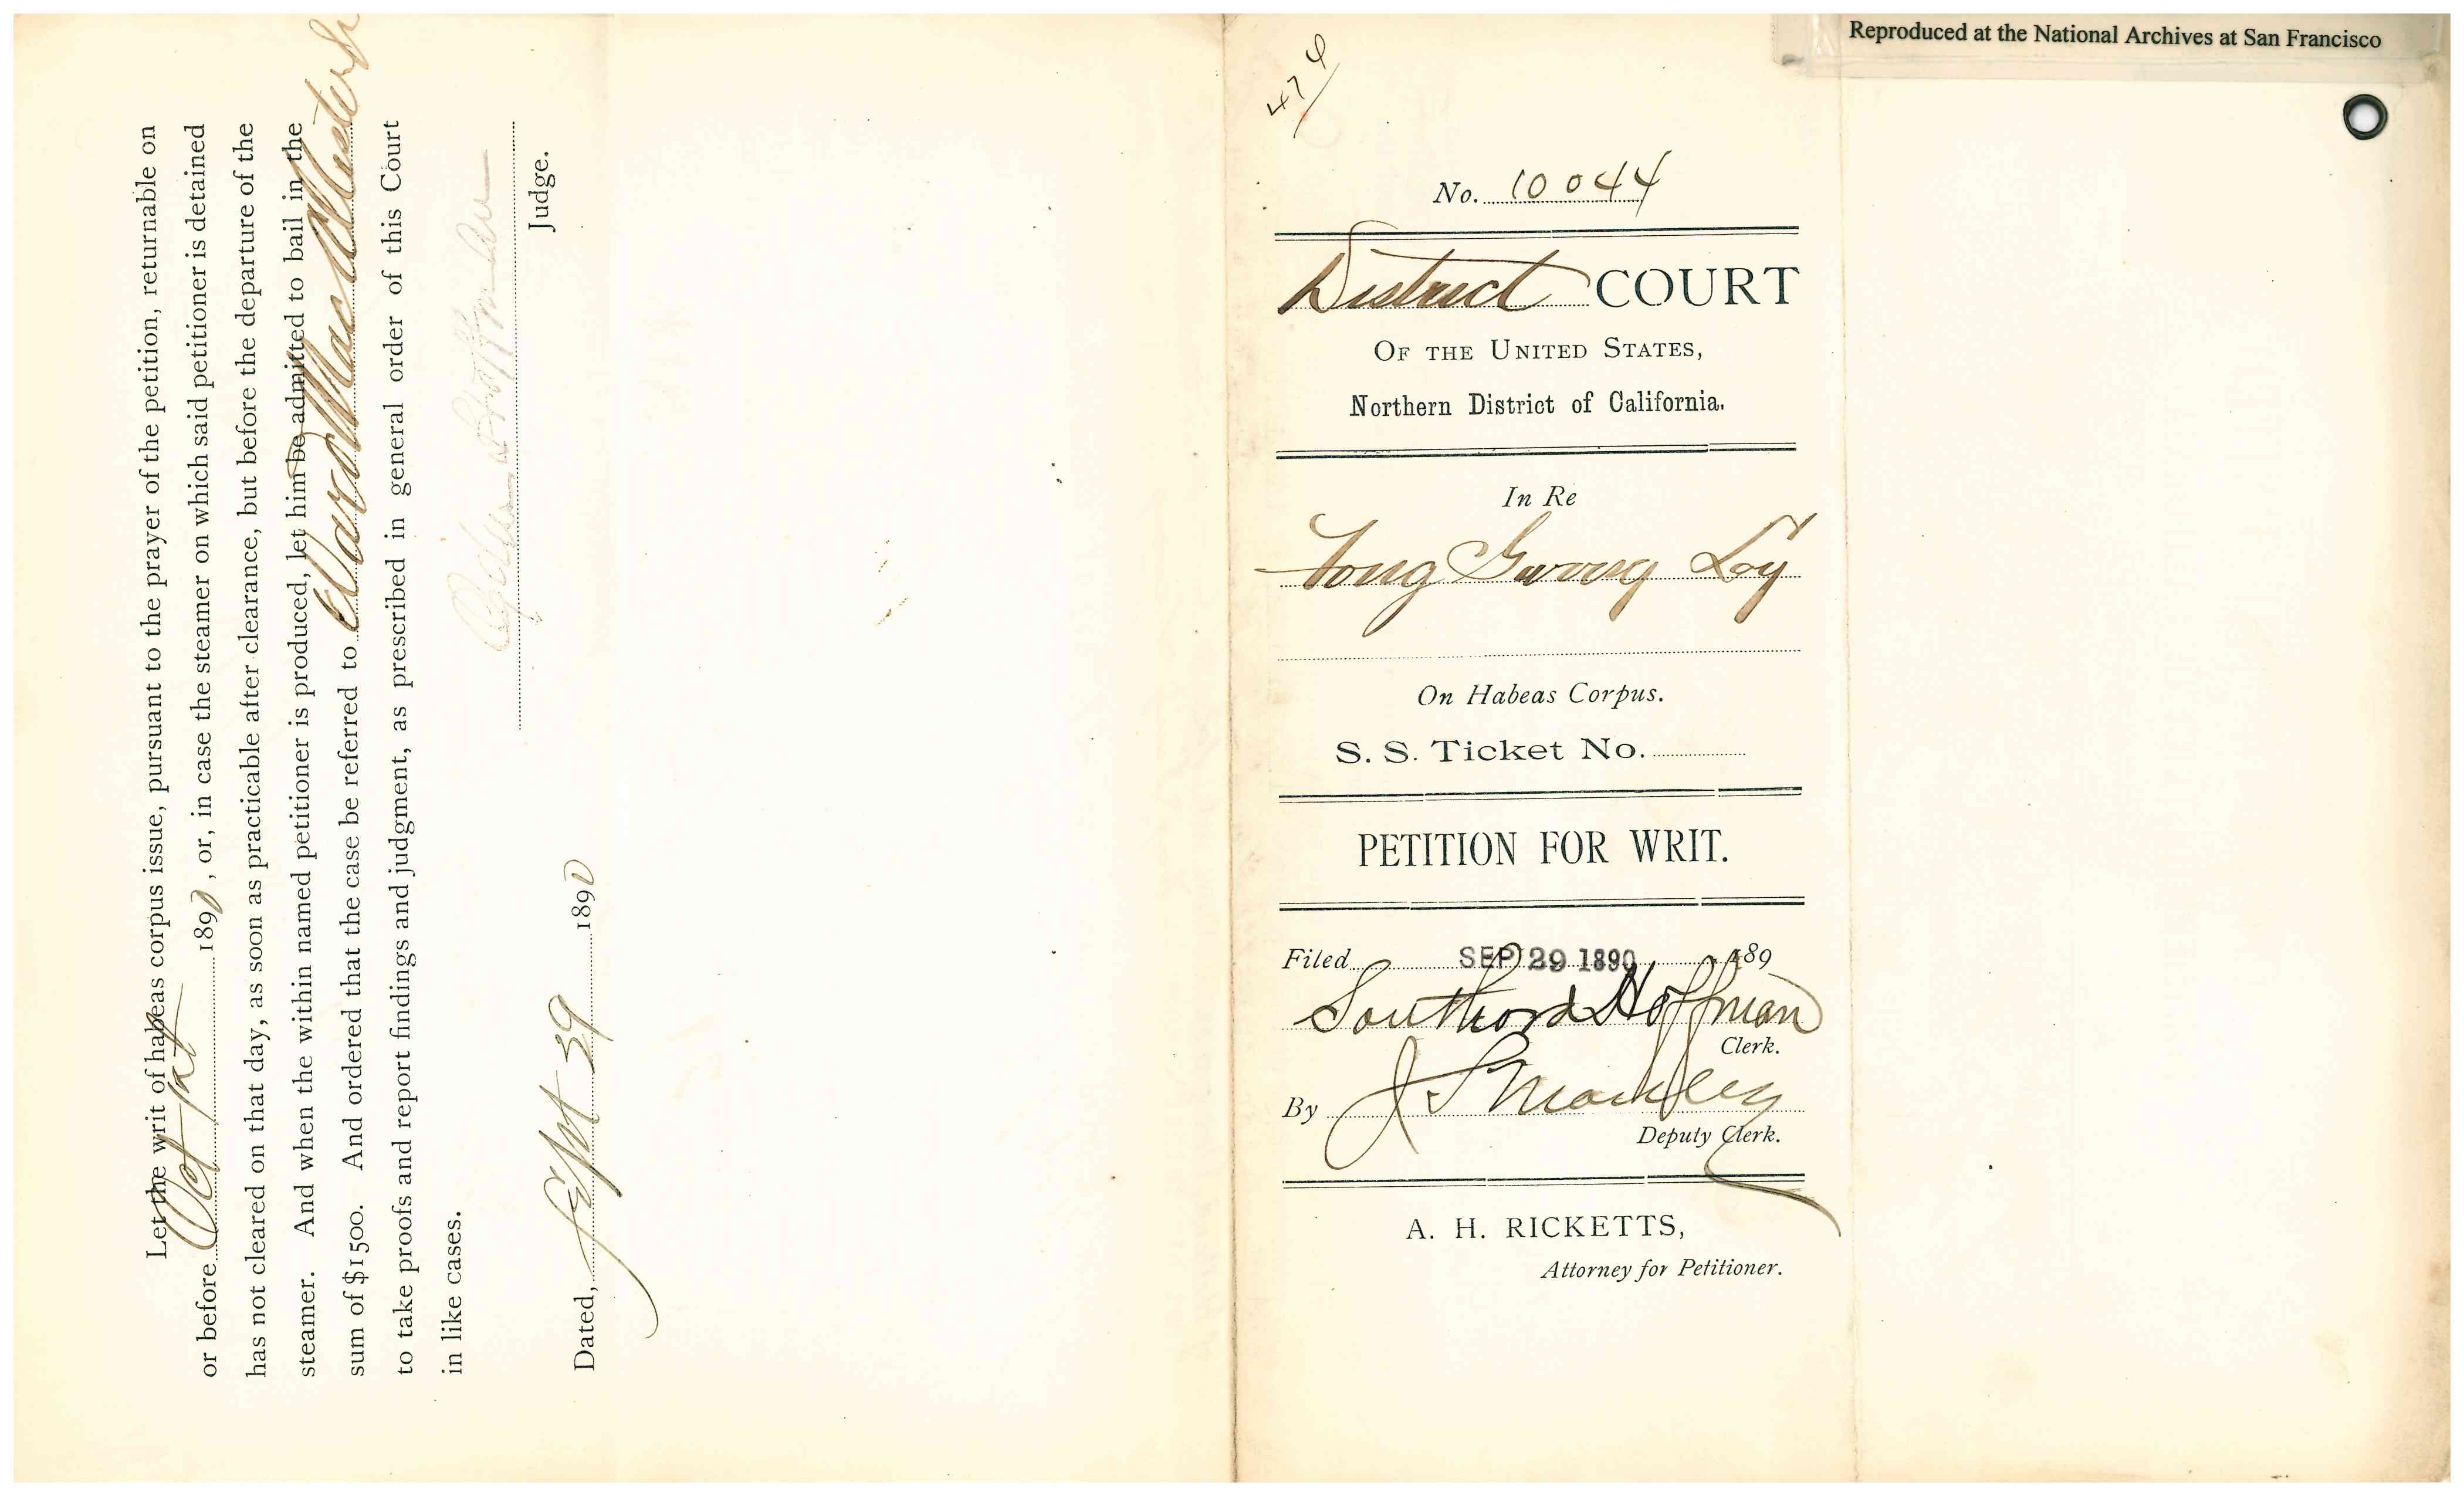 Let the writ of habeas corpus issue, pursuant to the prayer of the petition, returnable on
or before Oct 1st 1890, or, in case the steamer on which said petitioner is detained
has not cleared on that day, as soon as practicable after clearance, but before the departure of the
steamer. And when the within named petitioner is produced, let him be admitted to bail in the
sum of $1500. And ordered that the case be referred to Ward McAllister Jr
to take proofs and report findings and judgment, as prescribed in general order of this Court
in like cases.
Ogden Hoffman
Judge.
Dated, Sept 29 1890
Reproduced at the National Archives at San Francisco
474
No. 10044
District COURT
OF THE UNITED STATES,
Northern District of California.
In Re
Fong Gwong Loy
On Habeas Corpus.
S. S. Ticket No.
PETITION FOR WRIT.
Filed SEP 29 1890 189
Southard Hoffman
Clerk.
By J S Manley
Deputy Clerk.
A. H. RICKETTS,
Attorney for Petitioner.